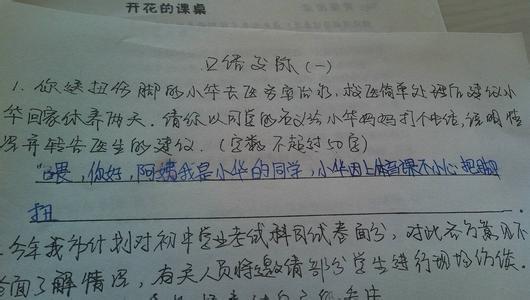 开花的课桌
口语交际(一)
1. 你送扭伤脚的小华去医务室治疗,校医简单处理后建议小
华回家休养两天。请你以同学的名义给小华妈妈打个电话,说明情
况并转告医生的建议。(字数不超过50字)
"喂,你好,阿姨我是小华的同学,小华因上体育课不小心把脚
扭
今年我市计划对初中学业考试科目试卷面分,对此各方意见不
全面了解情况,有关人员将邀请部分学生进行现场访谈。